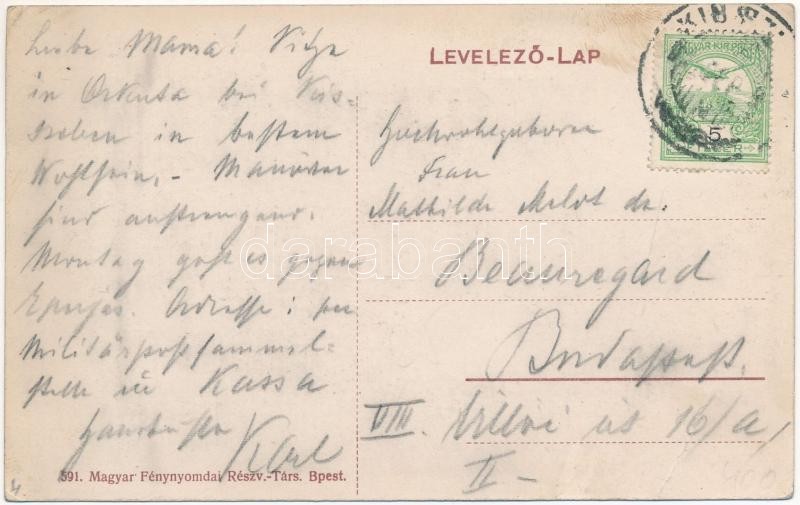 Liebe Mama! Sitze
in Orkuta bei Kis-
szeben in bestem
Wohlsein, – Manöver
sind anstrengend.
Montag geht es gegen
Eperjes. Adresse: per
Militärpostsammel-
stelle in Kassa
Karl
591. Magyar Fénynyomdai Részv.-Társ. Bpest.
LEVELEZŐ-LAP
Hochwohlgeborene
Frau
Mathilde Melot de
Beauregard
Budapest.
VIII. Üllői út 16/a,
II –
MAGYAR KIR. POSTA
5
darabanth
400
4